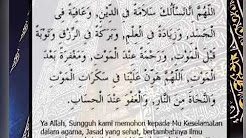 اَللّٰهُمَّ اِنَّا نَسْأَلُكَ سَلَامَةً فِى الدِّيْنِ، وَعَافِيَةً فِى
الْجَسَدِ، وَزِيَادَةً فِى الْعِلْمِ، وَبَرَكَةً فِى الرِّزْقِ، وَتَوْبَةً
قَبْلَ الْمَوْتِ، وَرَحْمَةً عِنْدَ الْمَوْتِ، وَمَغْفِرَةً بَعْدَ
الْمَوْتِ، اَللّٰهُمَّ هَوِّنْ عَلَيْنَا فِى سَكَرَاتِ الْمَوْتِ،
وَالنَّجَاةَ مِنَ النَّارِ، وَالْعَفْوَ عِنْدَ الْحِسَابِ.
Ya Allah, Sungguh kami memohon kepada Mu Keselamatan
dalam agama, Jasad yang sehat, bertambahnya ilmu